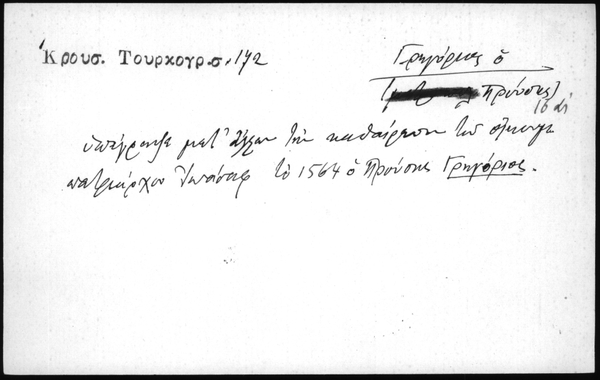 Κρουσ. Τουρκογρ.σ.172
Γρηγόριος ὁ
[Προύσης]
16 αἰ
ὑπέγραψε μετ' ἄλλων τὴν καθαίρεσιν τοῦ
πατριάρχου Ἰωάσαφ τῷ 1564 ὁ Προύσης Γρηγόριος.